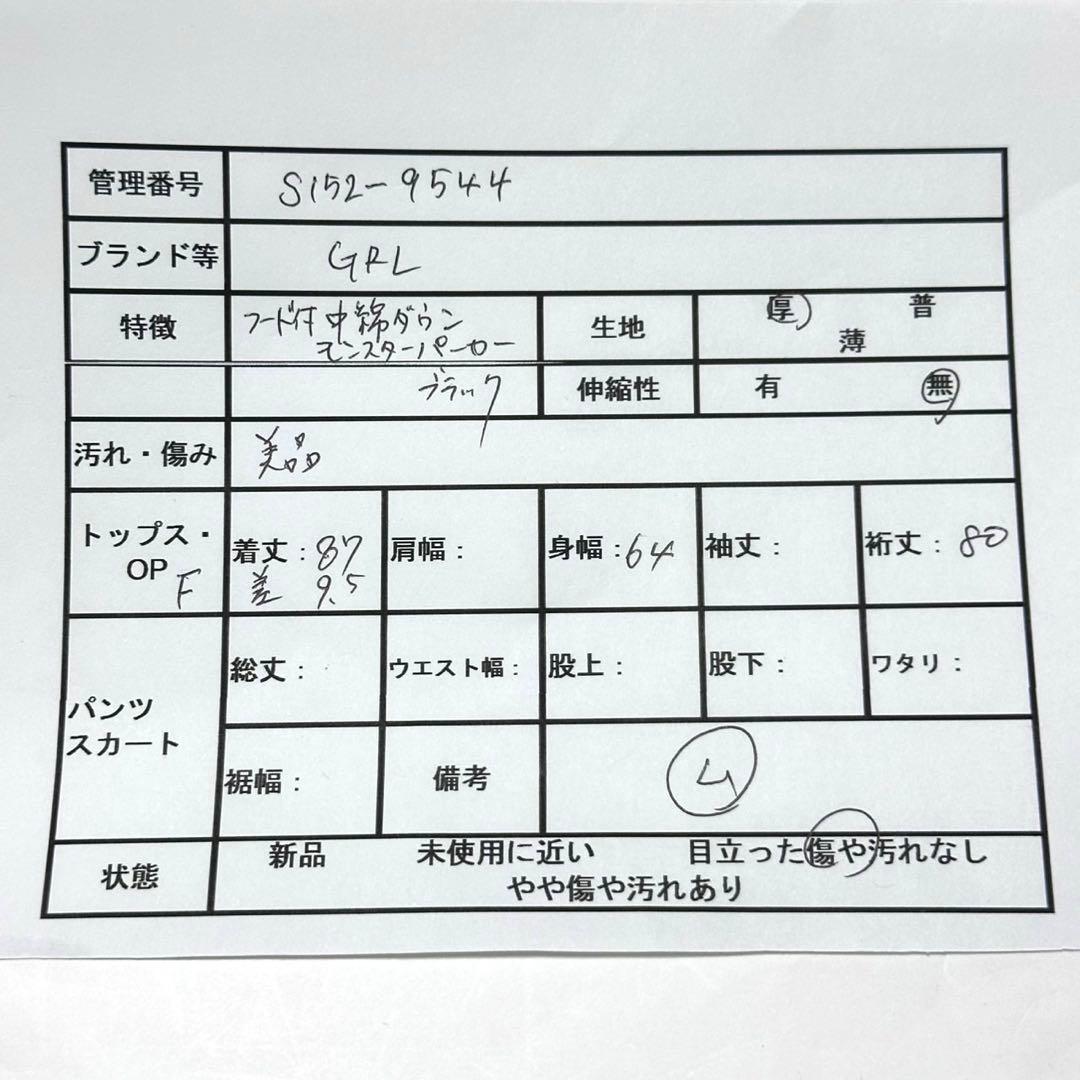 管理番号 S152-9544
ブランド等 GRL
特徴 フード付中綿ダウン 生地 厚 普
モンスターパーカー 薄
ブラック 伸縮性 有 無
汚れ・傷み 美品
トップス・OP F 着丈：87 肩幅： 身幅：64 袖丈： 裄丈：80
差 9.5
パンツ スカート 総丈： ウエスト幅： 股上： 股下： ワタリ：
裾幅： 備考 4
状態 新品 未使用に近い 目立った傷や汚れなし
やや傷や汚れあり